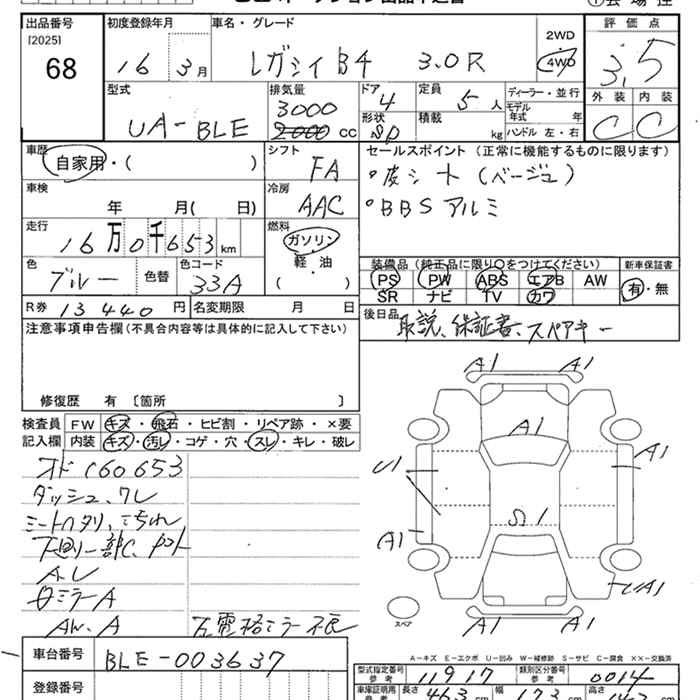 出品番号 初度登録年月 車名・グレード 2WD 評価点
[2025] 68 16 3月 レガシィB4 3.0R 4WD 3.5
型式 排気量 ドア 定員 ディーラー・並行 外装 内装
UA-BLE 3000 2000 cc 4 5人 モデル年式 年 C C
形状 SD 積載 kg ハンドル 左・右
車歴 シフト セールスポイント(正常に機能するものに限ります)
自家用・( ) FA ・皮シート(ベージュ)
車検 冷房 ・BBSアルミ
年 月( 日) AAC
走行 燃料
16万0千653km ガソリン
色 色コード 軽・油 装備品(純正品に限り○をつけてください) 新車保証書
ブルー 色替 33A ( ) PS PW ABS エアB AW 有・無
SR ナビ TV カワ
R券 13440円 名変期限 月 日 後日品
取説、保証書、スペアキー
注意事項申告欄(不具合内容等は具体的に記入して下さい)
修復歴 有 〔箇所 〕
検査員 FW キズ・飛石・ヒビ割・リペア跡・×要
記入欄 内装 キズ・汚レ・コゲ・穴・スレ・キレ・破レ
オドC60653
ダッシュ、クレ
シートヘタリ、こちれ
下廻り一部C、
Aレ
ミラーA
AW.A 左電格ミラー不良
A1 A1
A1
A1
U1
S1
A1
A1
A1 A1
スペア
A-キズ E-エクボ U-凹み W-補修跡 S-サビ C-腐食 XX-交換済
車台番号 BLE-003637
型式指定番号 参考 11917 類別区分番号 参考 0014
登録番号
車庫証明用 参考 長さ 463cm 幅 173cm 高さ